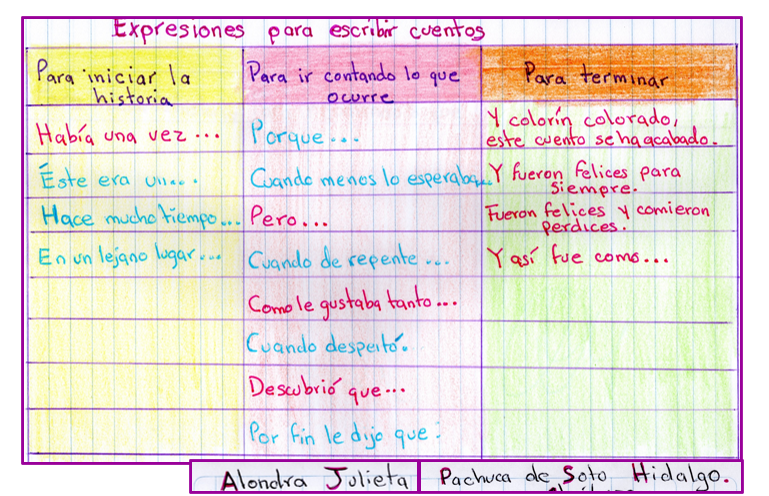 Expresiones para escribir cuentos
Para iniciar la
historia
Para ir contando lo que
ocurre
Para terminar
Había una vez...
Porque...
Y colorín colorado,
este cuento se ha acabado.
Éste era un....
Cuando menos lo esperaba...
Y fueron felices para
siempre.
Hace mucho tiempo...
Pero...
Fueron felices y comieron
perdices.
En un lejano lugar...
Cuando de repente...
Y así fue como...
Como le gustaba tanto...
Cuando despeitó.
Descubrió que...
Por fin le dijo que:
Alondra Julieta
Pachuca de Soto Hidalgo.